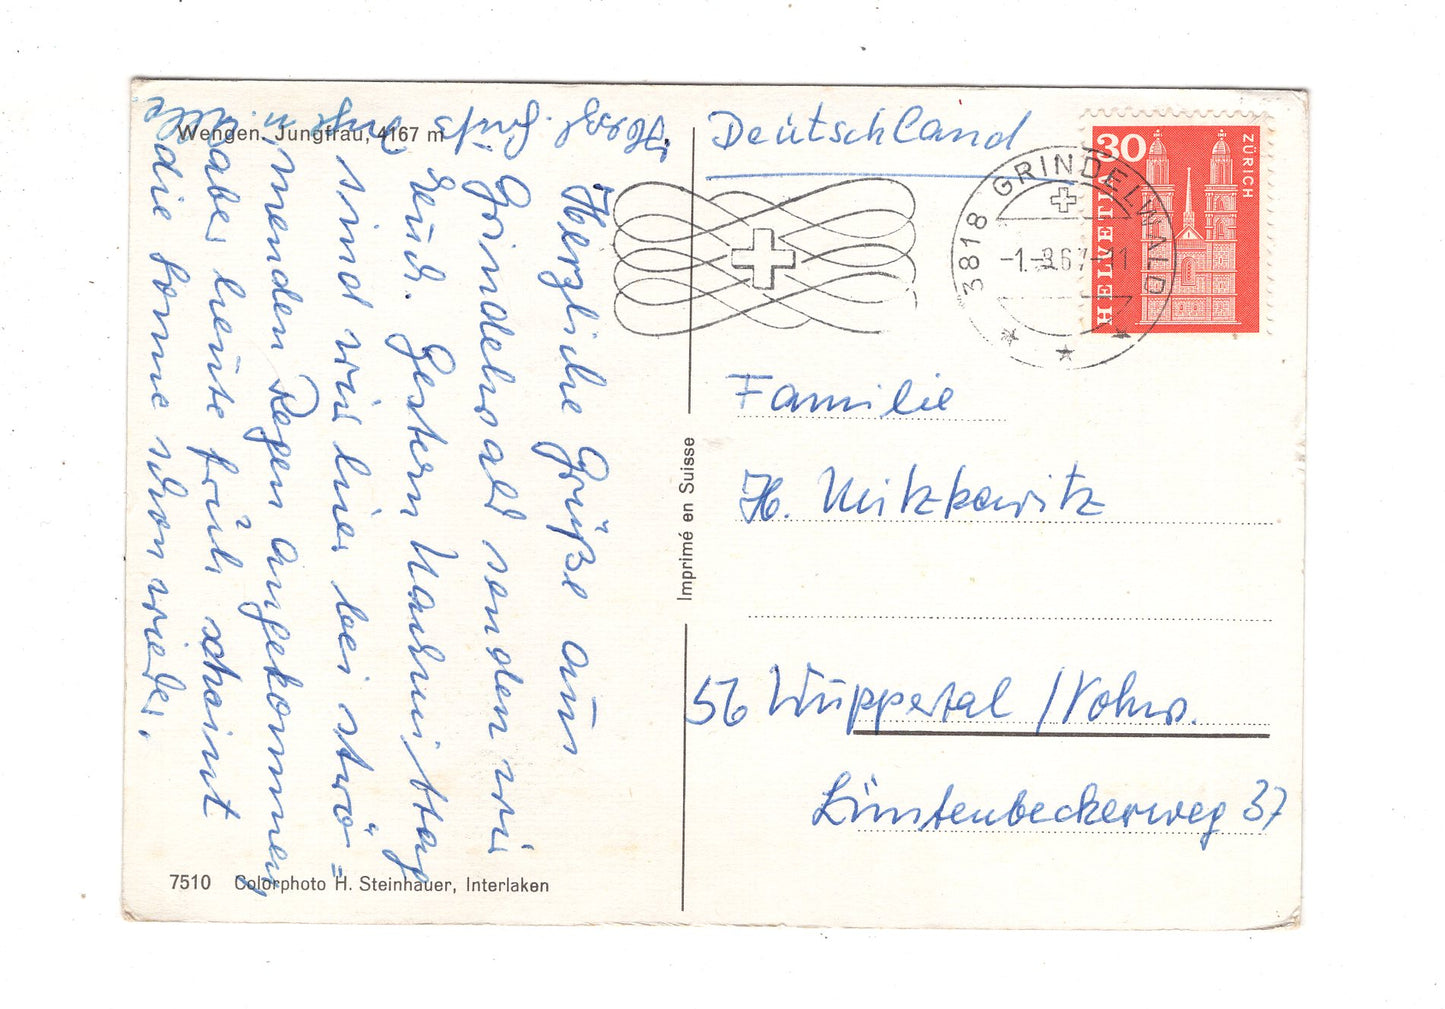 Wengen. Jungfrau, 4167 m
Herzliche Grüße aus
Grindelwald senden wir
Euch. Gestern Nachmittag
sind wir hier bei strö=
menden Regen angekommen,
aber heute früh scheint
die Sonne schon wieder.
Herzl. Grüß
7510 Colorphoto H. Steinhauer, Interlaken
Imprimé en Suisse
Deutschland
3818 GRINDELWALD
-1.-8.67-11
30
HELVETIA
ZÜRICH
Familie
H. Mitzkewitz
56 Wuppertal / Vohw.
Lüntenbeckerweg 37